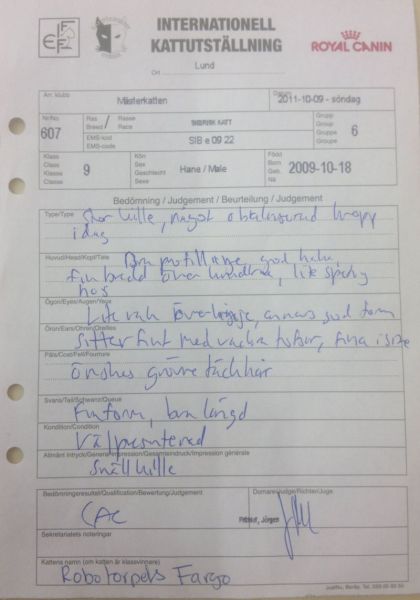 FIFe
INTERNATIONELL
KATTUTSTÄLLNING
ROYAL CANIN
Ort Lund
Arr. klubb
Mästerkatten
Datum
2011-10-09 - söndag
Nr/No
607
Ras Breed / Rasse Race
SIBIRISK KATT
EMS-kod
EMS-code
SIB e 09 22
Grupp
Group
Gruppe
Groupe
6
Klass
Class
Klasse
Classe
9
Kön
Sex
Geschlecht
Sexe
Hane / Male
Född
Born
Geb.
Né
2009-10-18
Bedömning / Judgement / Beurteilung / Judgement
Type/Type
Stor kille, något obalanserad kropp
idag
Huvud/Head/Kopf/Tête
Bra profillinje, god haka,
fin bredd över kindben, lite spetsig
nos
Ögon/Eyes/Augen/Yeux
Lite rak överlinje, annars god form
Öron/Ears/Ohren/Oreilles
Sitter fint med vackra tofsar, fina i size
Päls/Coat/Fell/Fourrure
Önskes grövre täckhår
Svans/Tail/Schwanz/Queue
Fin form, bra längd
Kondition/Condition
Välpresenterad
Allmänt intryck/General impression/Gesamteindruck/Impression générale
Snäll kille
Bedömningsresultat/Qualification/Bewertung/Judgement
CAC
Domare/Judge/Richter/Juge
Jörgen
Sekretariatets noteringar
Kattens namn (om katten är klassvinnare)
Robotorpets Fargo